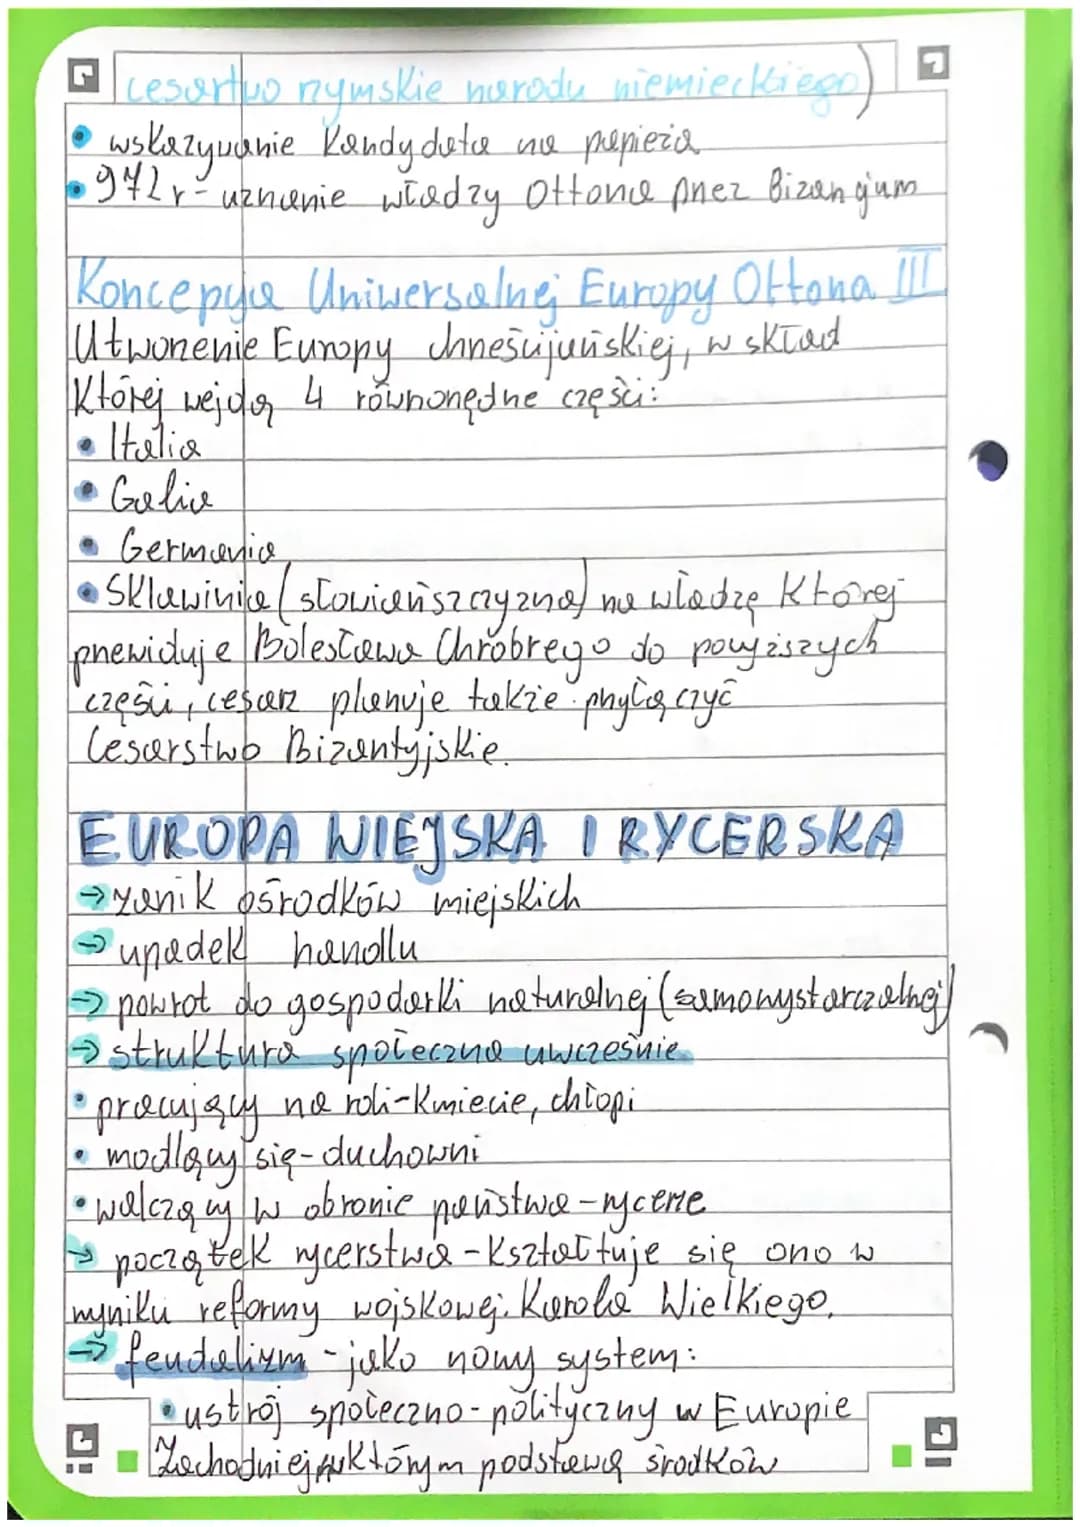 cesartwo rzymskie narodu niemieckiego)
• wskazywanie kandydata na papieża
• 972 r - uznanie władzy Ottona przez Bizancjum
Koncepcja Uniwersalnej Europy Ottona III
Utworzenie Europy chrześcijańskiej, w skład
której wejdą 4 równorzędne części:
• Italia
• Galia
• Germania
• Sklawinia (słowiańszczyzna) na władzę której
przewiduje Bolesława Chrobrego do powyższych
części, cesarz planuje także przyłączyć
Cesarstwo Bizantyjskie.
EUROPA WIEJSKA I RYCERSKA
→ zanik ośrodków miejskich
→ upadek handlu
→ powrót do gospodarki naturalnej (samowystarczalnej)
→ struktura społeczna uwcześnie
• pracujący na roli - kmiecie, chłopi
• modlący się - duchowni
• walczący w obronie państwa - rycerze
→ początek rycerstwa - kształtuje się ono w
wyniku reformy wojskowej. Karola Wielkiego.
→ feudalizm - jako nowy system:
• ustrój społeczno - polityczny w Europie
Zachodniej, w którym podstawą środków